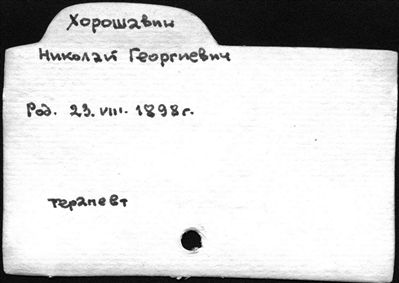 Хорошавин
Николай Георгиевич
Род. 23. VIII. 1898г.
терапевт